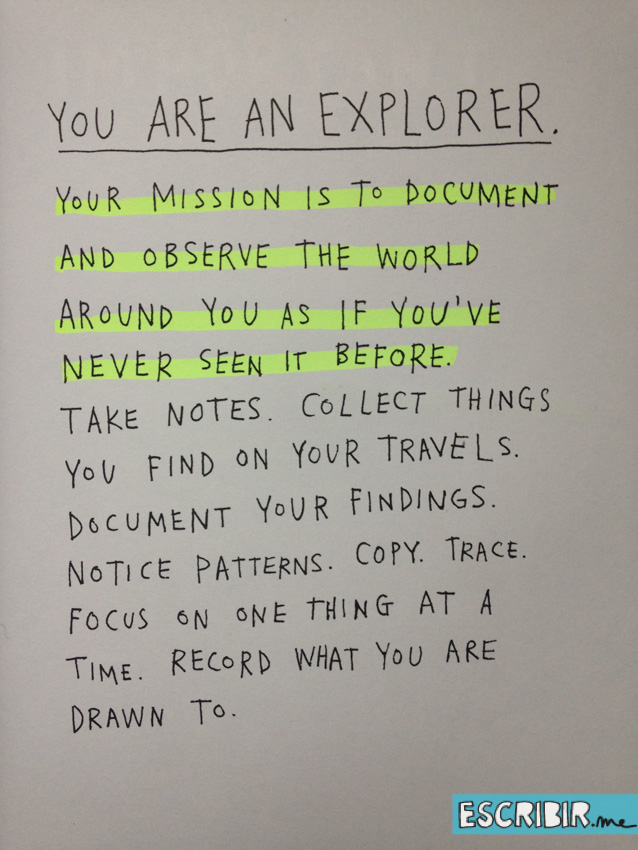 YOU ARE AN EXPLORER.
YOUR MISSION IS TO DOCUMENT
AND OBSERVE THE WORLD
AROUND YOU AS IF YOU'VE
NEVER SEEN IT BEFORE.
TAKE NOTES. COLLECT THINGS
YOU FIND ON YOUR TRAVELS.
DOCUMENT YOUR FINDINGS.
NOTICE PATTERNS. COPY. TRACE.
FOCUS ON ONE THING AT A
TIME. RECORD WHAT YOU ARE
DRAWN TO.
ESCRIBIR.me